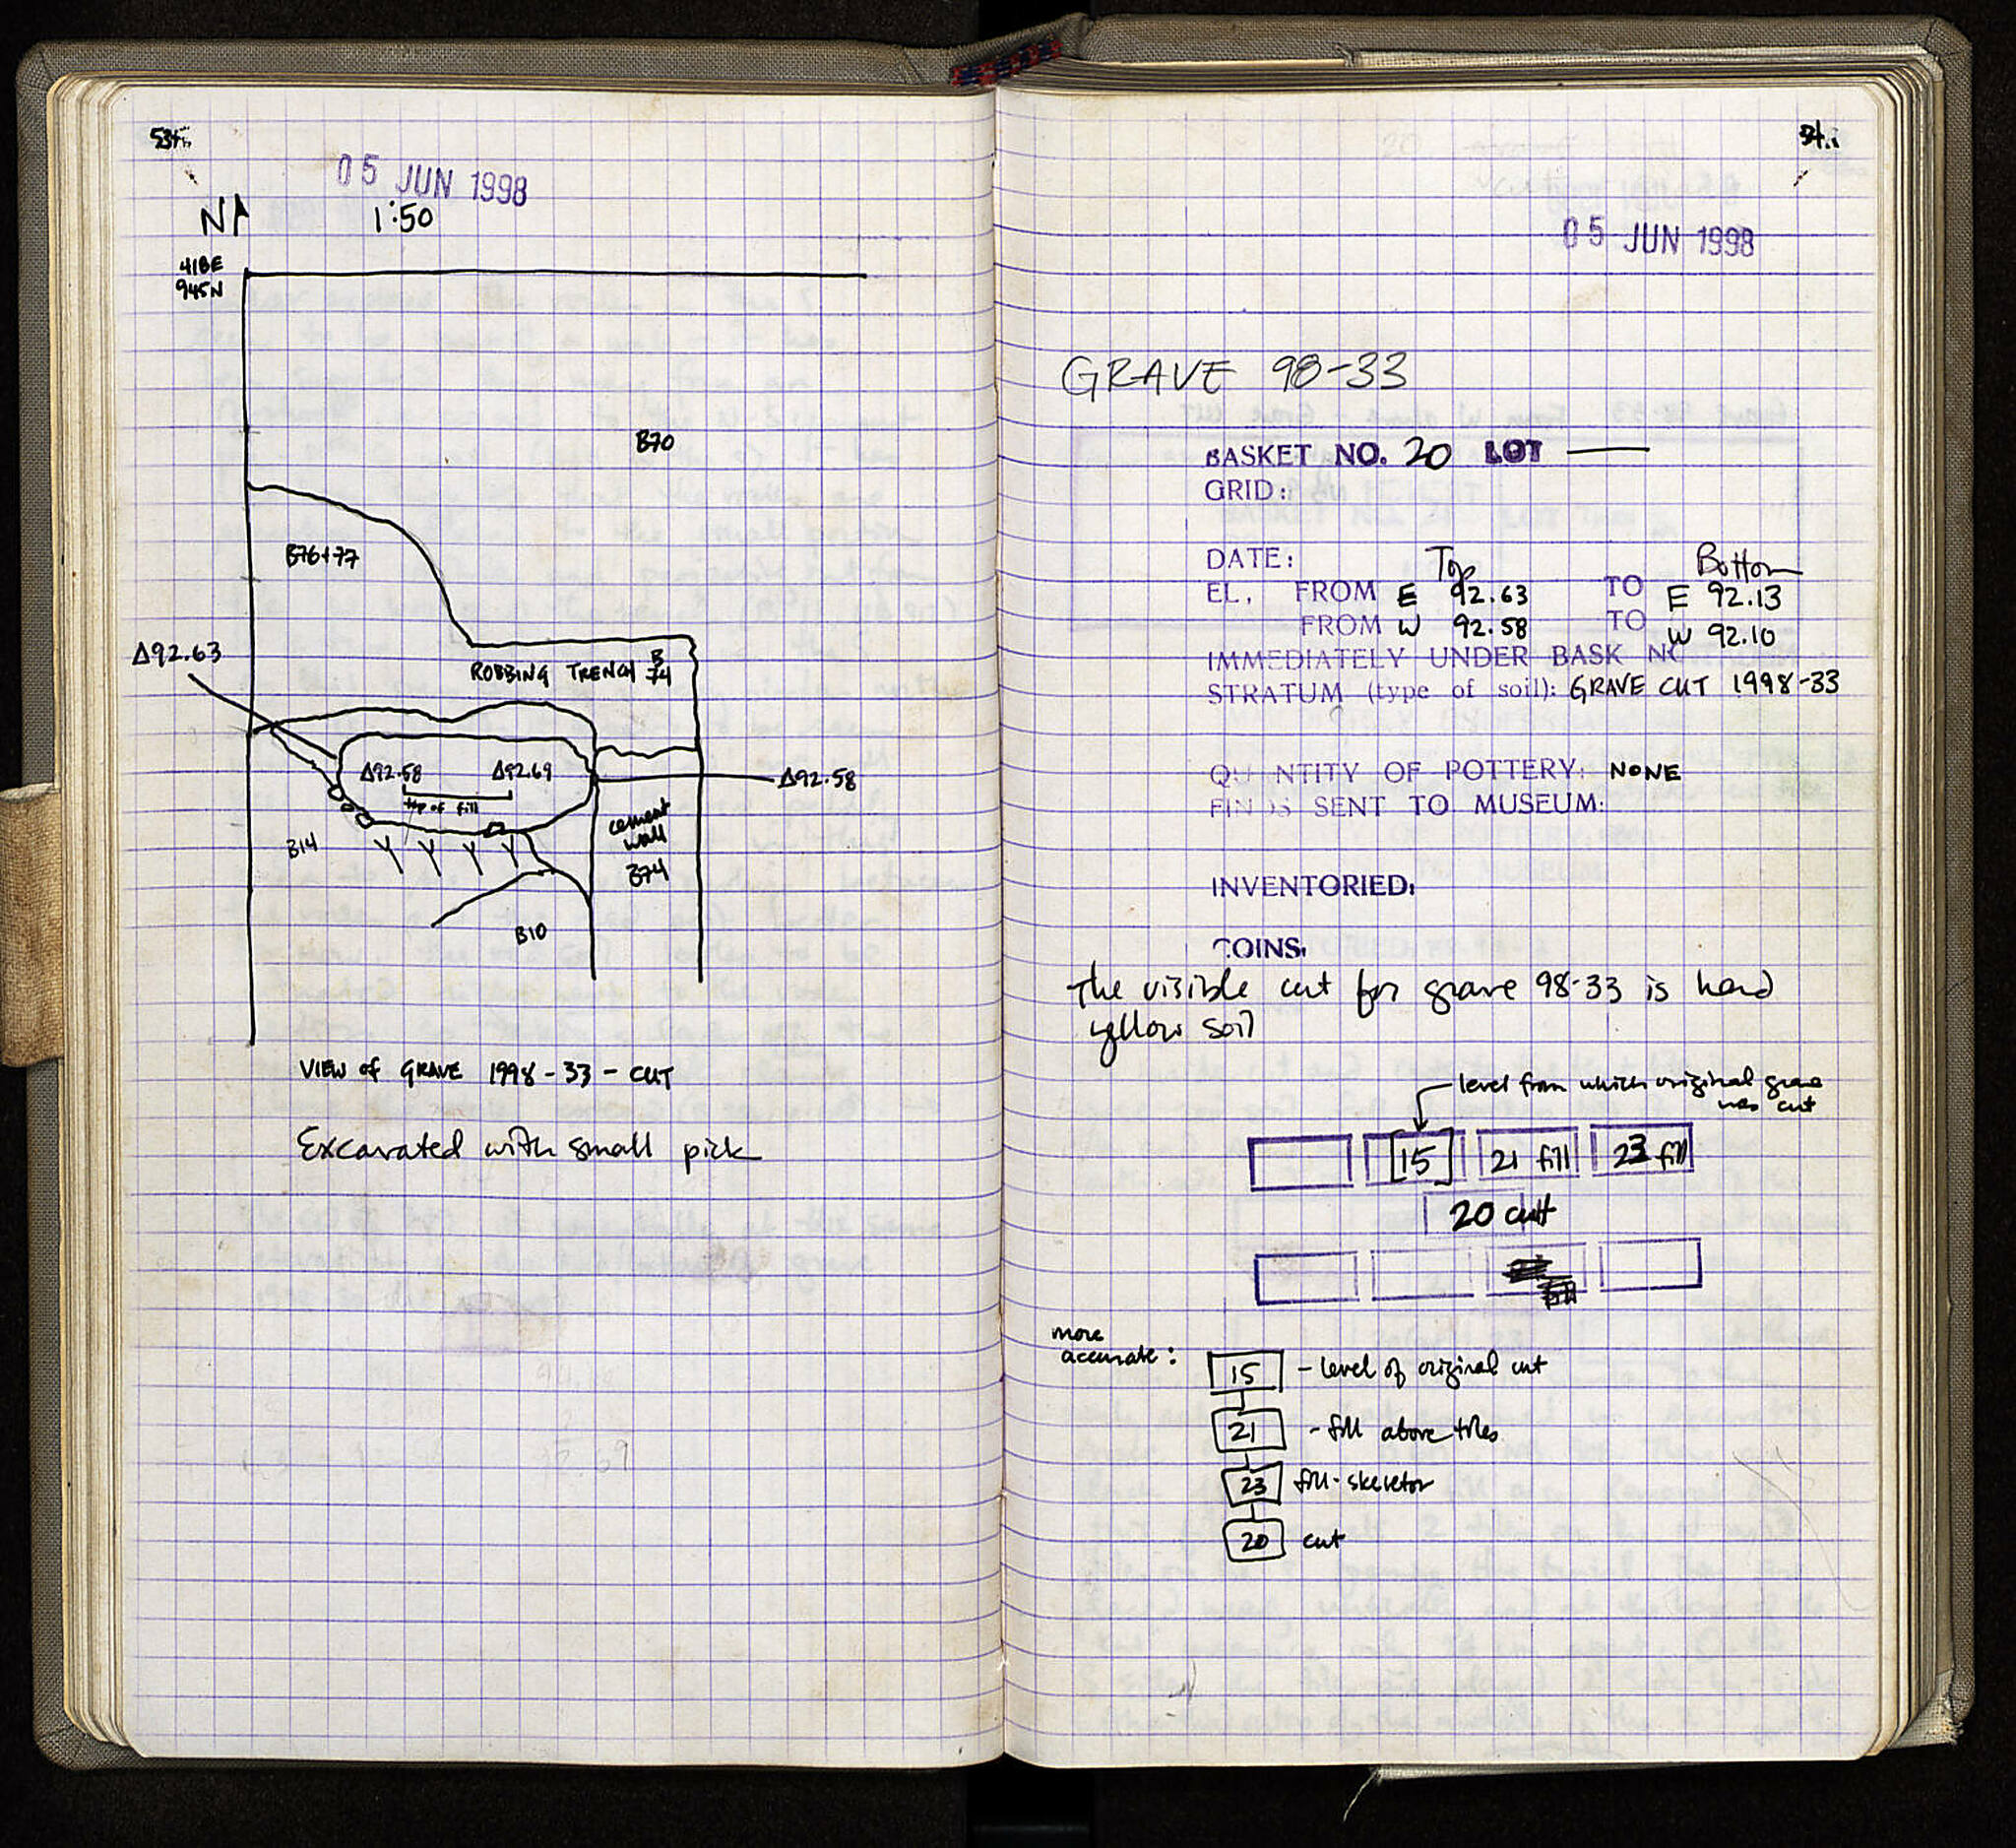 05 JUN 1998
N
1:50
418E
945N
B70
B76+77
Δ92.63
ROBBING TRENCH B
74
Δ92.58 Δ92.69
Δ92.58
top of fill
cement
wall
B74
B14
B10
VIEW of GRAVE 1998-33-CUT
Excavated with small pick
05 JUN 1998
GRAVE 98-33
BASKET NO. 20 LOT —
GRID:
DATE: Top Bottom
EL, FROM E 92.63 TO E 92.13
FROM W 92.58 TO W 92.10
IMMEDIATELY UNDER BASK NO
STRATUM (type of soil): GRAVE CUT 1998-33
QUANTITY OF POTTERY: NONE
FINDS SENT TO MUSEUM:
INVENTORIED:
COINS:
The visible cut for grave 98-33 is hard
yellow soil
level from which original grave
was cut
15 21 fill 23 fill
20 cut
more
accurate:
15 - level of original cut
21 - fill above tiles
23 fill-skeleton
20 cut